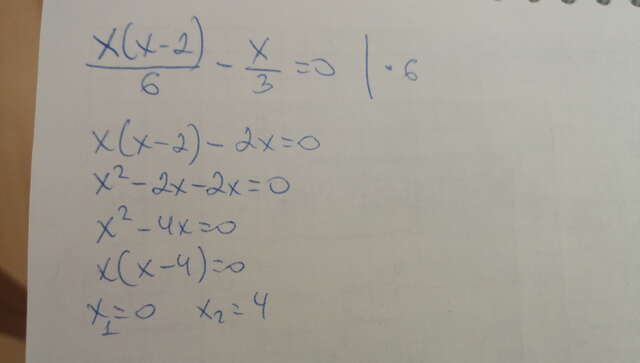 x(x-2)/6 - x/3 = 0 | · 6
x(x-2) - 2x = 0
x² - 2x - 2x = 0
x² - 4x = 0
x(x-4) = 0
x₁ = 0 x₂ = 4